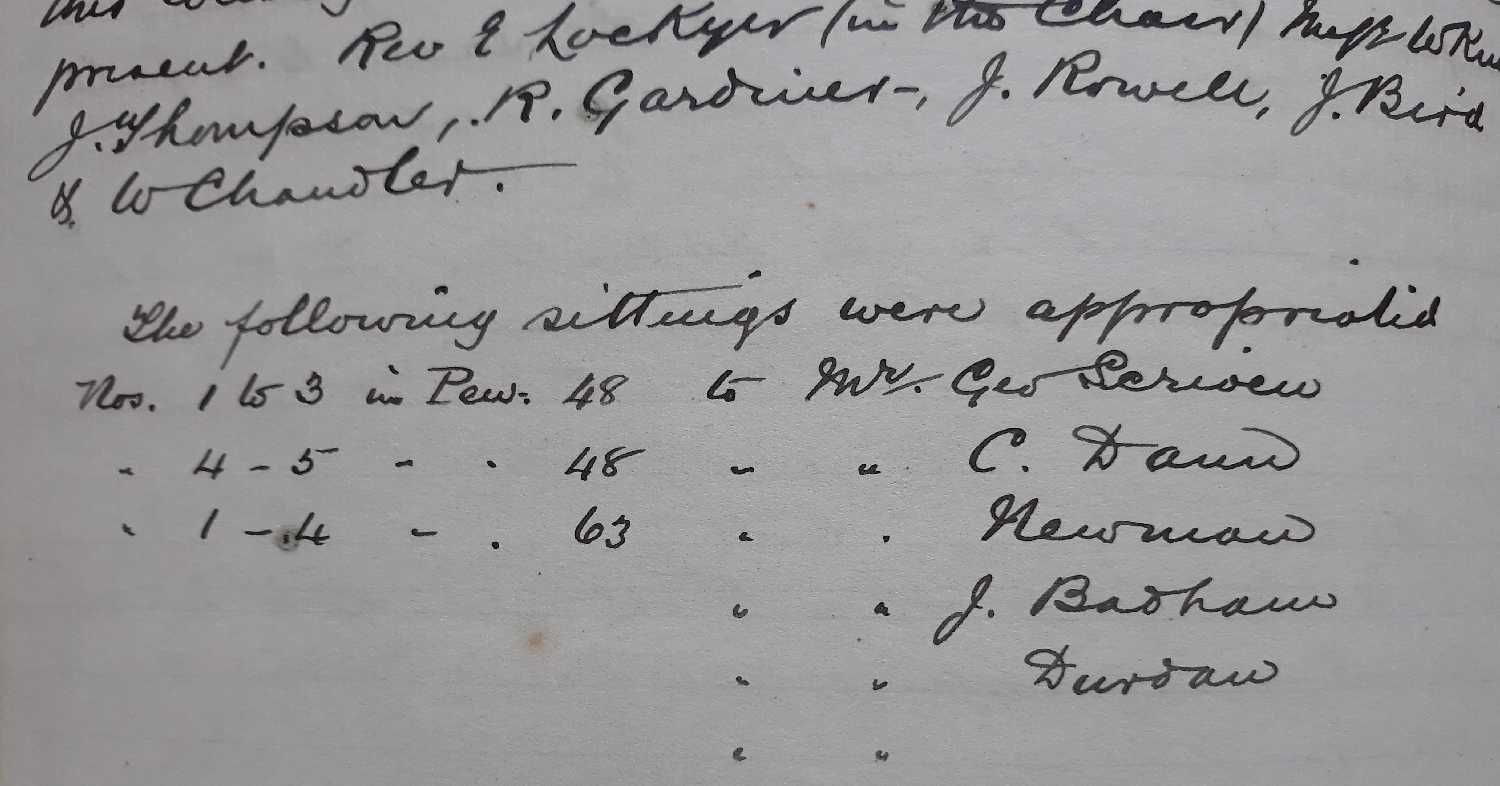 this
present. Rev E Lockyer (in the Chair) Messrs W
J. Thompson, R. Gardiner, J. Rowell, J. Bird
& W Chandler.
The following sittings were appropriated
Nos. 1 to 3 in Pew. 48 to Mr. Geo Scriven
" 4 - 5 " " 48 " " C. Dann
" 1 - 4 " " 63 " " Newman
" " J. Badham
" " Durdan
" "